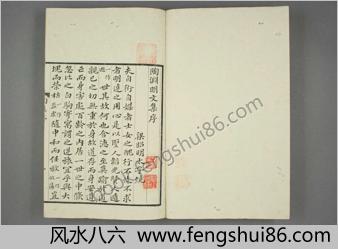 陶淵明文集序
梁昭明太子撰
夫自衒自媒者士女之醜行不忮不求
者明達之用心是以聖人韜光賢人遁
世其故何也含德之至莫踰於道
親己之切無重於身故道存而身安道
亡而身害處百齡之內居一世之中倏
忽比之白駒寄寓謂之逆旅宜乎與大
塊而榮枯隨中和而任放豈
fengshui86.com
风水八六 www.fengshui86.com